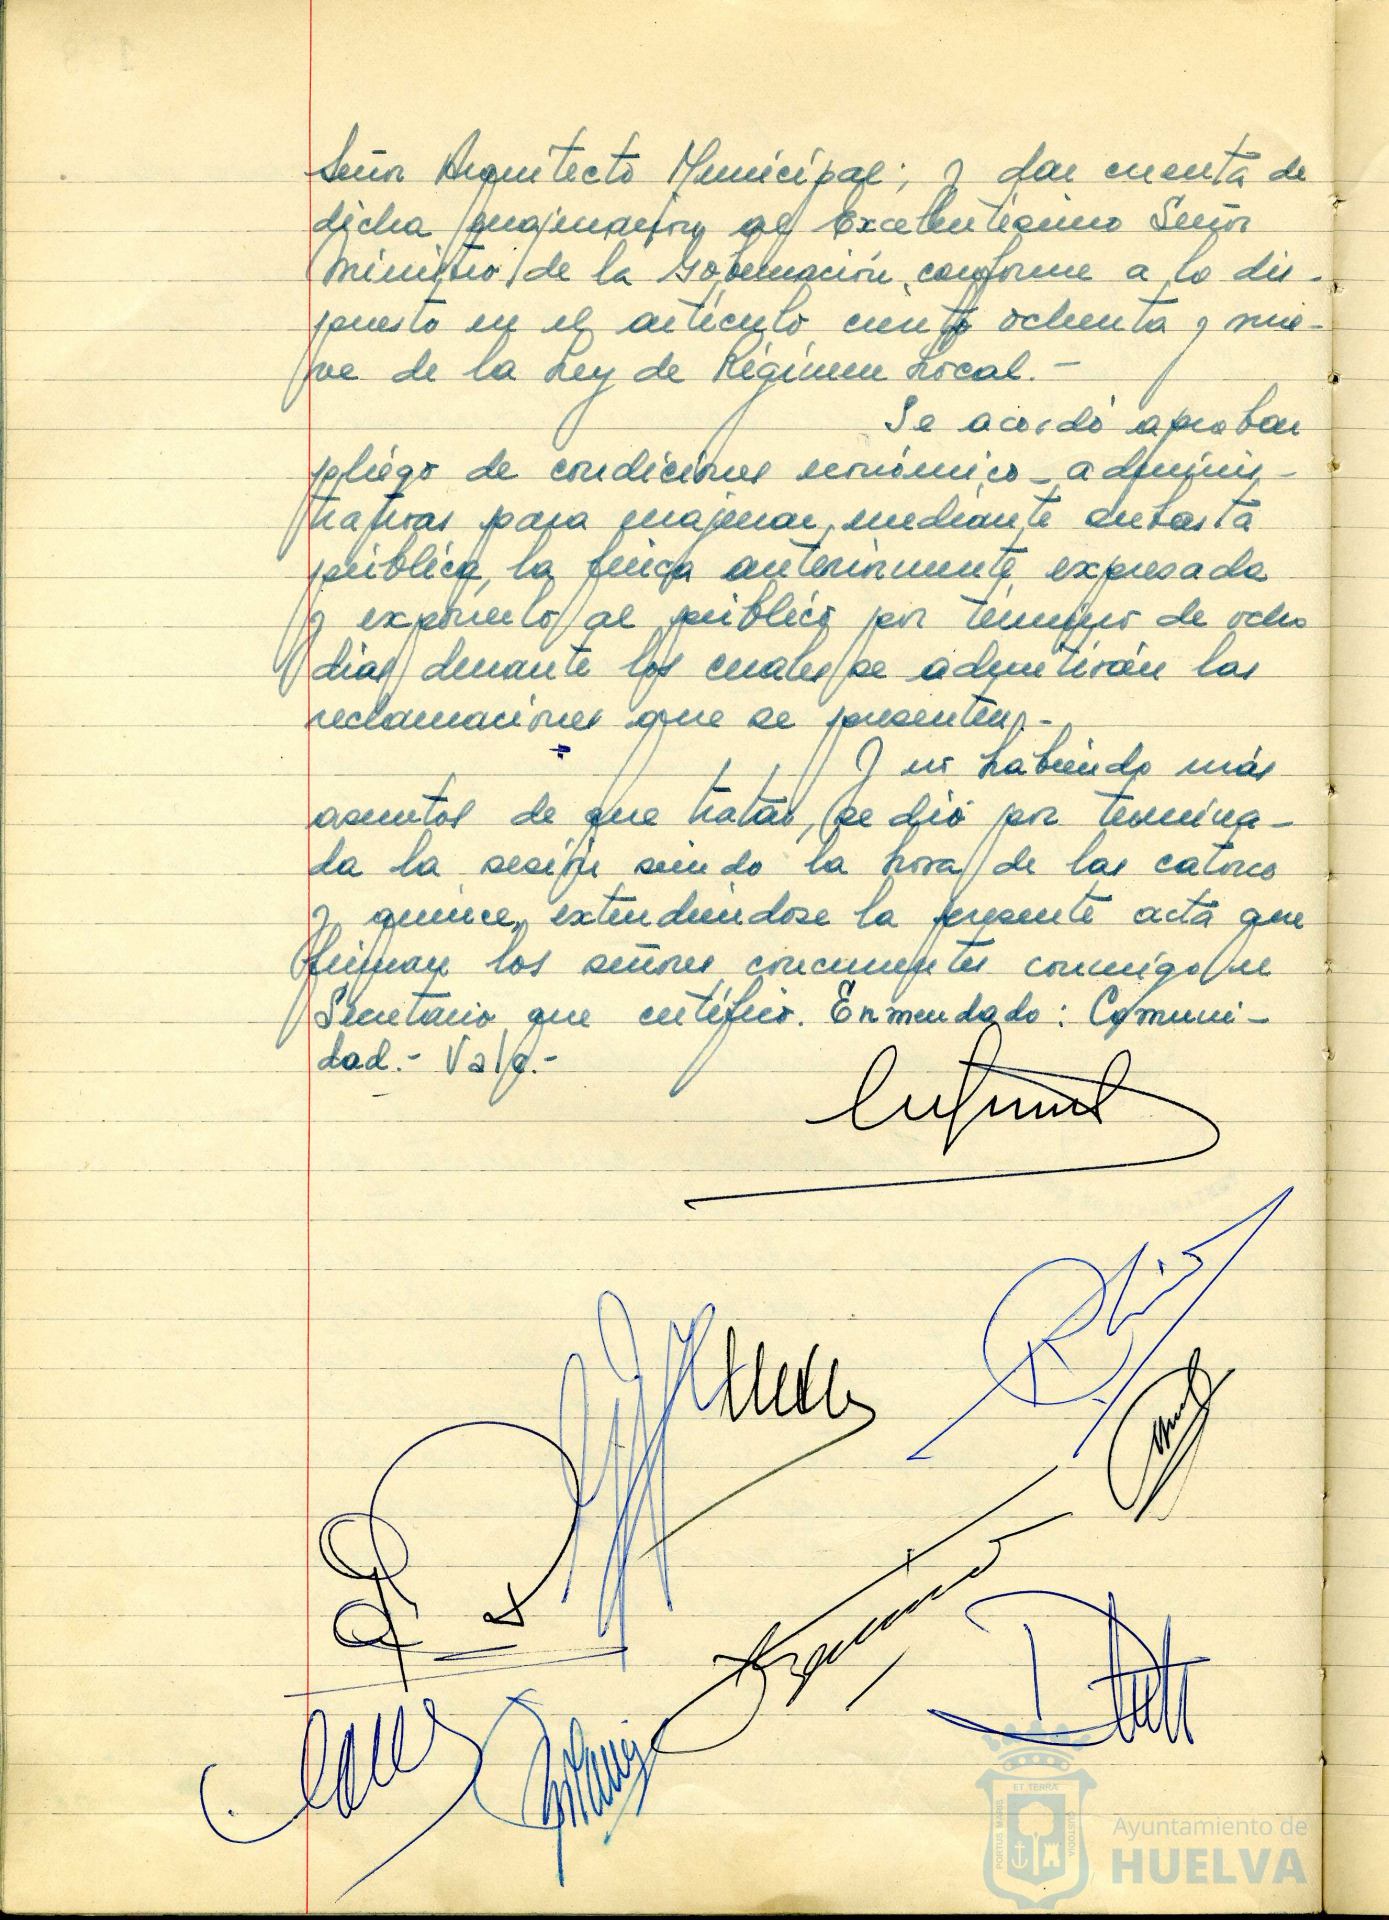 Señor Arquitecto Municipal; y dar cuenta de
dicha enajenación al Excelentísimo Señor
Ministro de la Gobernación, conforme a lo dis-
puesto en el artículo ciento ochenta y nue-
ve de la Ley de Régimen Local.-
Se acordó aprobar
pliego de condiciones económico-adminis-
trativas para enajenar, mediante subasta
pública, la finca anteriormente expresada
y exponerlo al público por término de ocho
días, durante los cuales se admitirán las
reclamaciones que se presenten.-
Y no habiendo más
asuntos de que tratar, se dió por termina-
da la sesión siendo la hora de las catorce
y quince, extendiéndose la presente acta que
firman los señores concurrentes conmigo el
Secretario, que certifico. Enmendado: Comuni-
dad.- Vale.-
ET TERRA
PORTUS MARIS
CUSTODIA
Ayuntamiento de
HUELVA